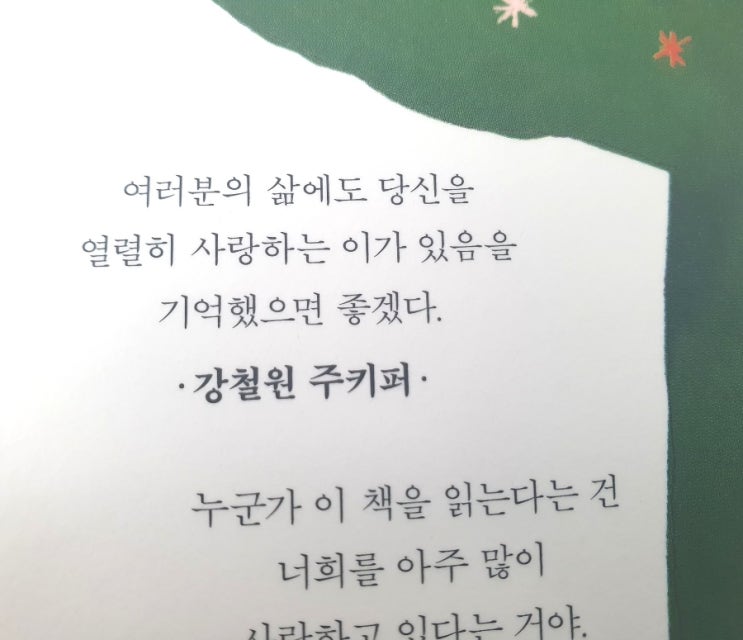 여러분의 삶에도 당신을
열렬히 사랑하는 이가 있음을
기억했으면 좋겠다.
·강철원 주키퍼·
누군가 이 책을 읽는다는 건
너희를 아주 많이
사랑하고 있다는 거야.